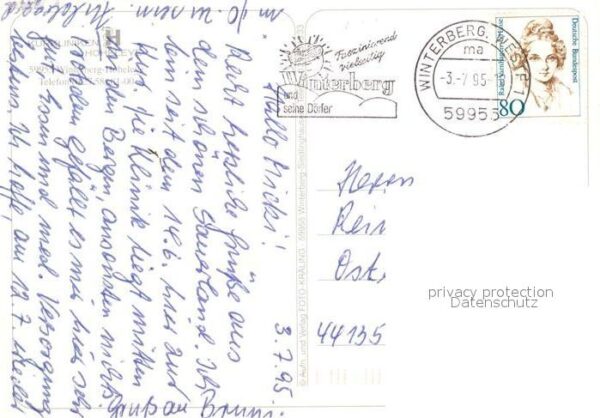 3.7.95.
Hallo Micki!
Recht herzliche Grüße aus
dem schönen Sauerland. Ich
bin seit dem 14.6. hier zur
Kur. Die Klinik liegt mitten
in den Bergen, ansonsten nichts
Trotzdem gefällt es mir hier sehr
gut. Essen und med. Versorgung
bestens. Ich hoffe, am 12.7
zu
am
KLINIKEN
59955 Winterberg
Telefon
© Aufn. und Verlag FOTO-KRÄLING 59955 Winterberg-Siedlinghausen
Faszinierend
vielseitig
Winterberg
und
seine Dörfer
WINTERBERG, WESTF 1
ma
-3.-7.95-
59955
Deutsche Bundespost
80
Herrn
Rein
Ost
44135
privacy protection
Datenschutz